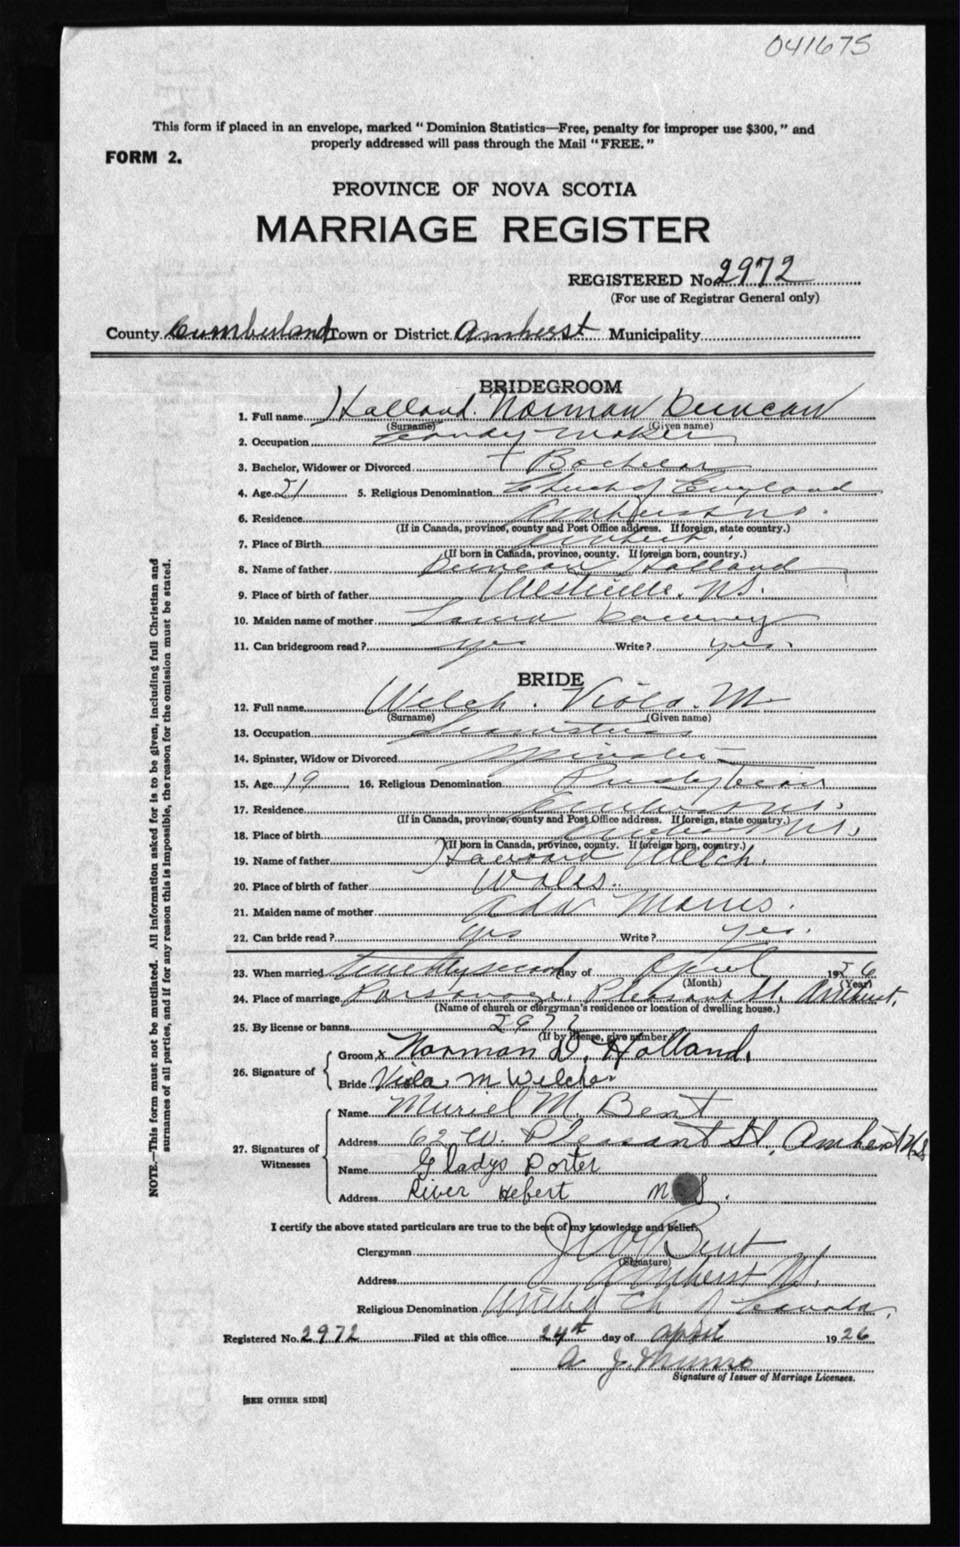 041675
This form if placed in an envelope, marked "Dominion Statistics—Free, penalty for improper use $300," and
properly addressed will pass through the Mail "FREE."
FORM 2.
PROVINCE OF NOVA SCOTIA
MARRIAGE REGISTER
REGISTERED No. 2972
(For use of Registrar General only)
County Cumberland Town or District Amherst Municipality
BRIDEGROOM
1. Full name Holland Norman Duncan
(Surname) (Given name)
2. Occupation Candy maker
3. Bachelor, Widower or Divorced Bachelor
4. Age 21 5. Religious Denomination Church of England
6. Residence Amherst N.S.
(If in Canada, province, county and Post Office address. If foreign, state country.)
7. Place of Birth Amherst.
(If born in Canada, province, county. If foreign born, country.)
8. Name of father Duncan Holland
9. Place of birth of father Westville. N.S.
10. Maiden name of mother Laura
11. Can bridegroom read? yes Write? yes.
BRIDE
12. Full name Welch. Viola. M
(Surname) (Given name)
13. Occupation Seamstress
14. Spinster, Widow or Divorced Spinster
15. Age 19 16. Religious Denomination Presbyterian
17. Residence Amherst N.S.
(If in Canada, province, county and Post Office address. If foreign, state country.)
18. Place of birth Amherst N.S.
(If born in Canada, province, county. If foreign born, country.)
19. Name of father Howard Welch.
20. Place of birth of father Wales.
21. Maiden name of mother Ada Morris.
22. Can bride read? yes Write? yes.
23. When married twenty second day of April 1926
(Month) (Year)
24. Place of marriage Parsonage, Pleasant St. Amherst.
(Name of church or clergyman's residence or location of dwelling house.)
25. By license or banns 2972
(If by license, give number)
26. Signature of
Groom x Norman D. Holland.
Bride Viola M Welch
27. Signatures of Witnesses
Name Muriel M. Bent
Address 62 W. Pleasant St, Amherst N.S
Name Gladys Porter
Address River Hebert N.S.
I certify the above stated particulars are true to the best of my knowledge and belief.
Clergyman Bent
(Signature)
Address Amherst N.S.
Religious Denomination United Ch of Canada.
Registered No. 2972 Filed at this office 24th day of April 1926
A J. Munro
Signature of Issuer of Marriage Licenses.
[SEE OTHER SIDE]
NOTE.—This form must not be mutilated. All information asked for is to be given, including full Christian and
surnames of all parties, and if for any reason this is impossible, the reason for the omission must be stated.